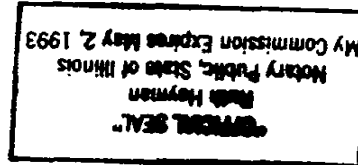 "OFFICIAL SEAL"
Ruth Hayman
Notary Public, State of Illinois
My Commission Expires May 2, 1993